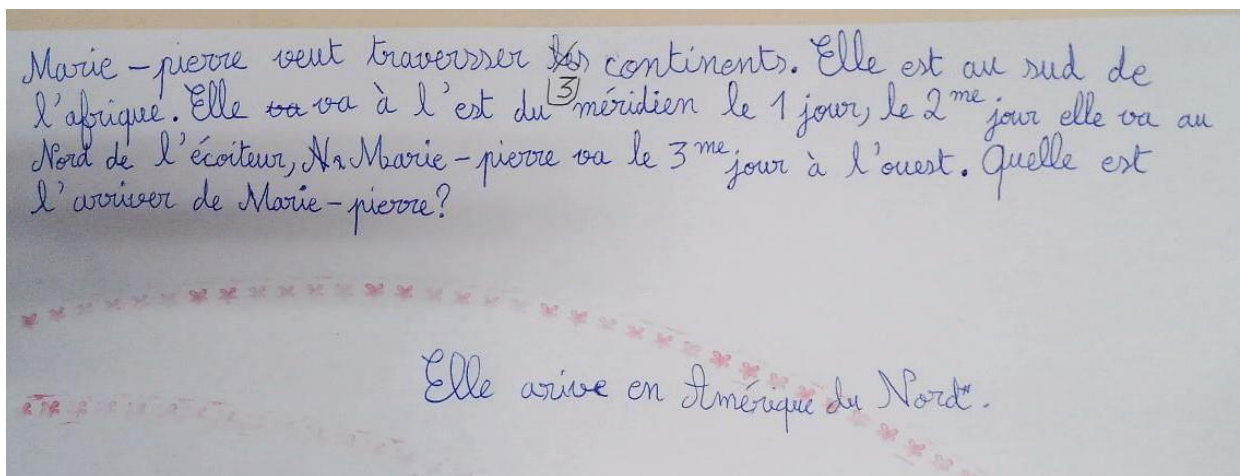 Marie-pierre veut traversser 3 continents. Elle est au sud de
l'afrique. Elle va à l'est du méridien le 1 jour, le 2me jour elle va au
Nord de l'écoiteur, Marie-pierre va le 3me jour à l'ouest. Quelle est
l'arriver de Marie-pierre?
Elle arive en Amérique du Nord.